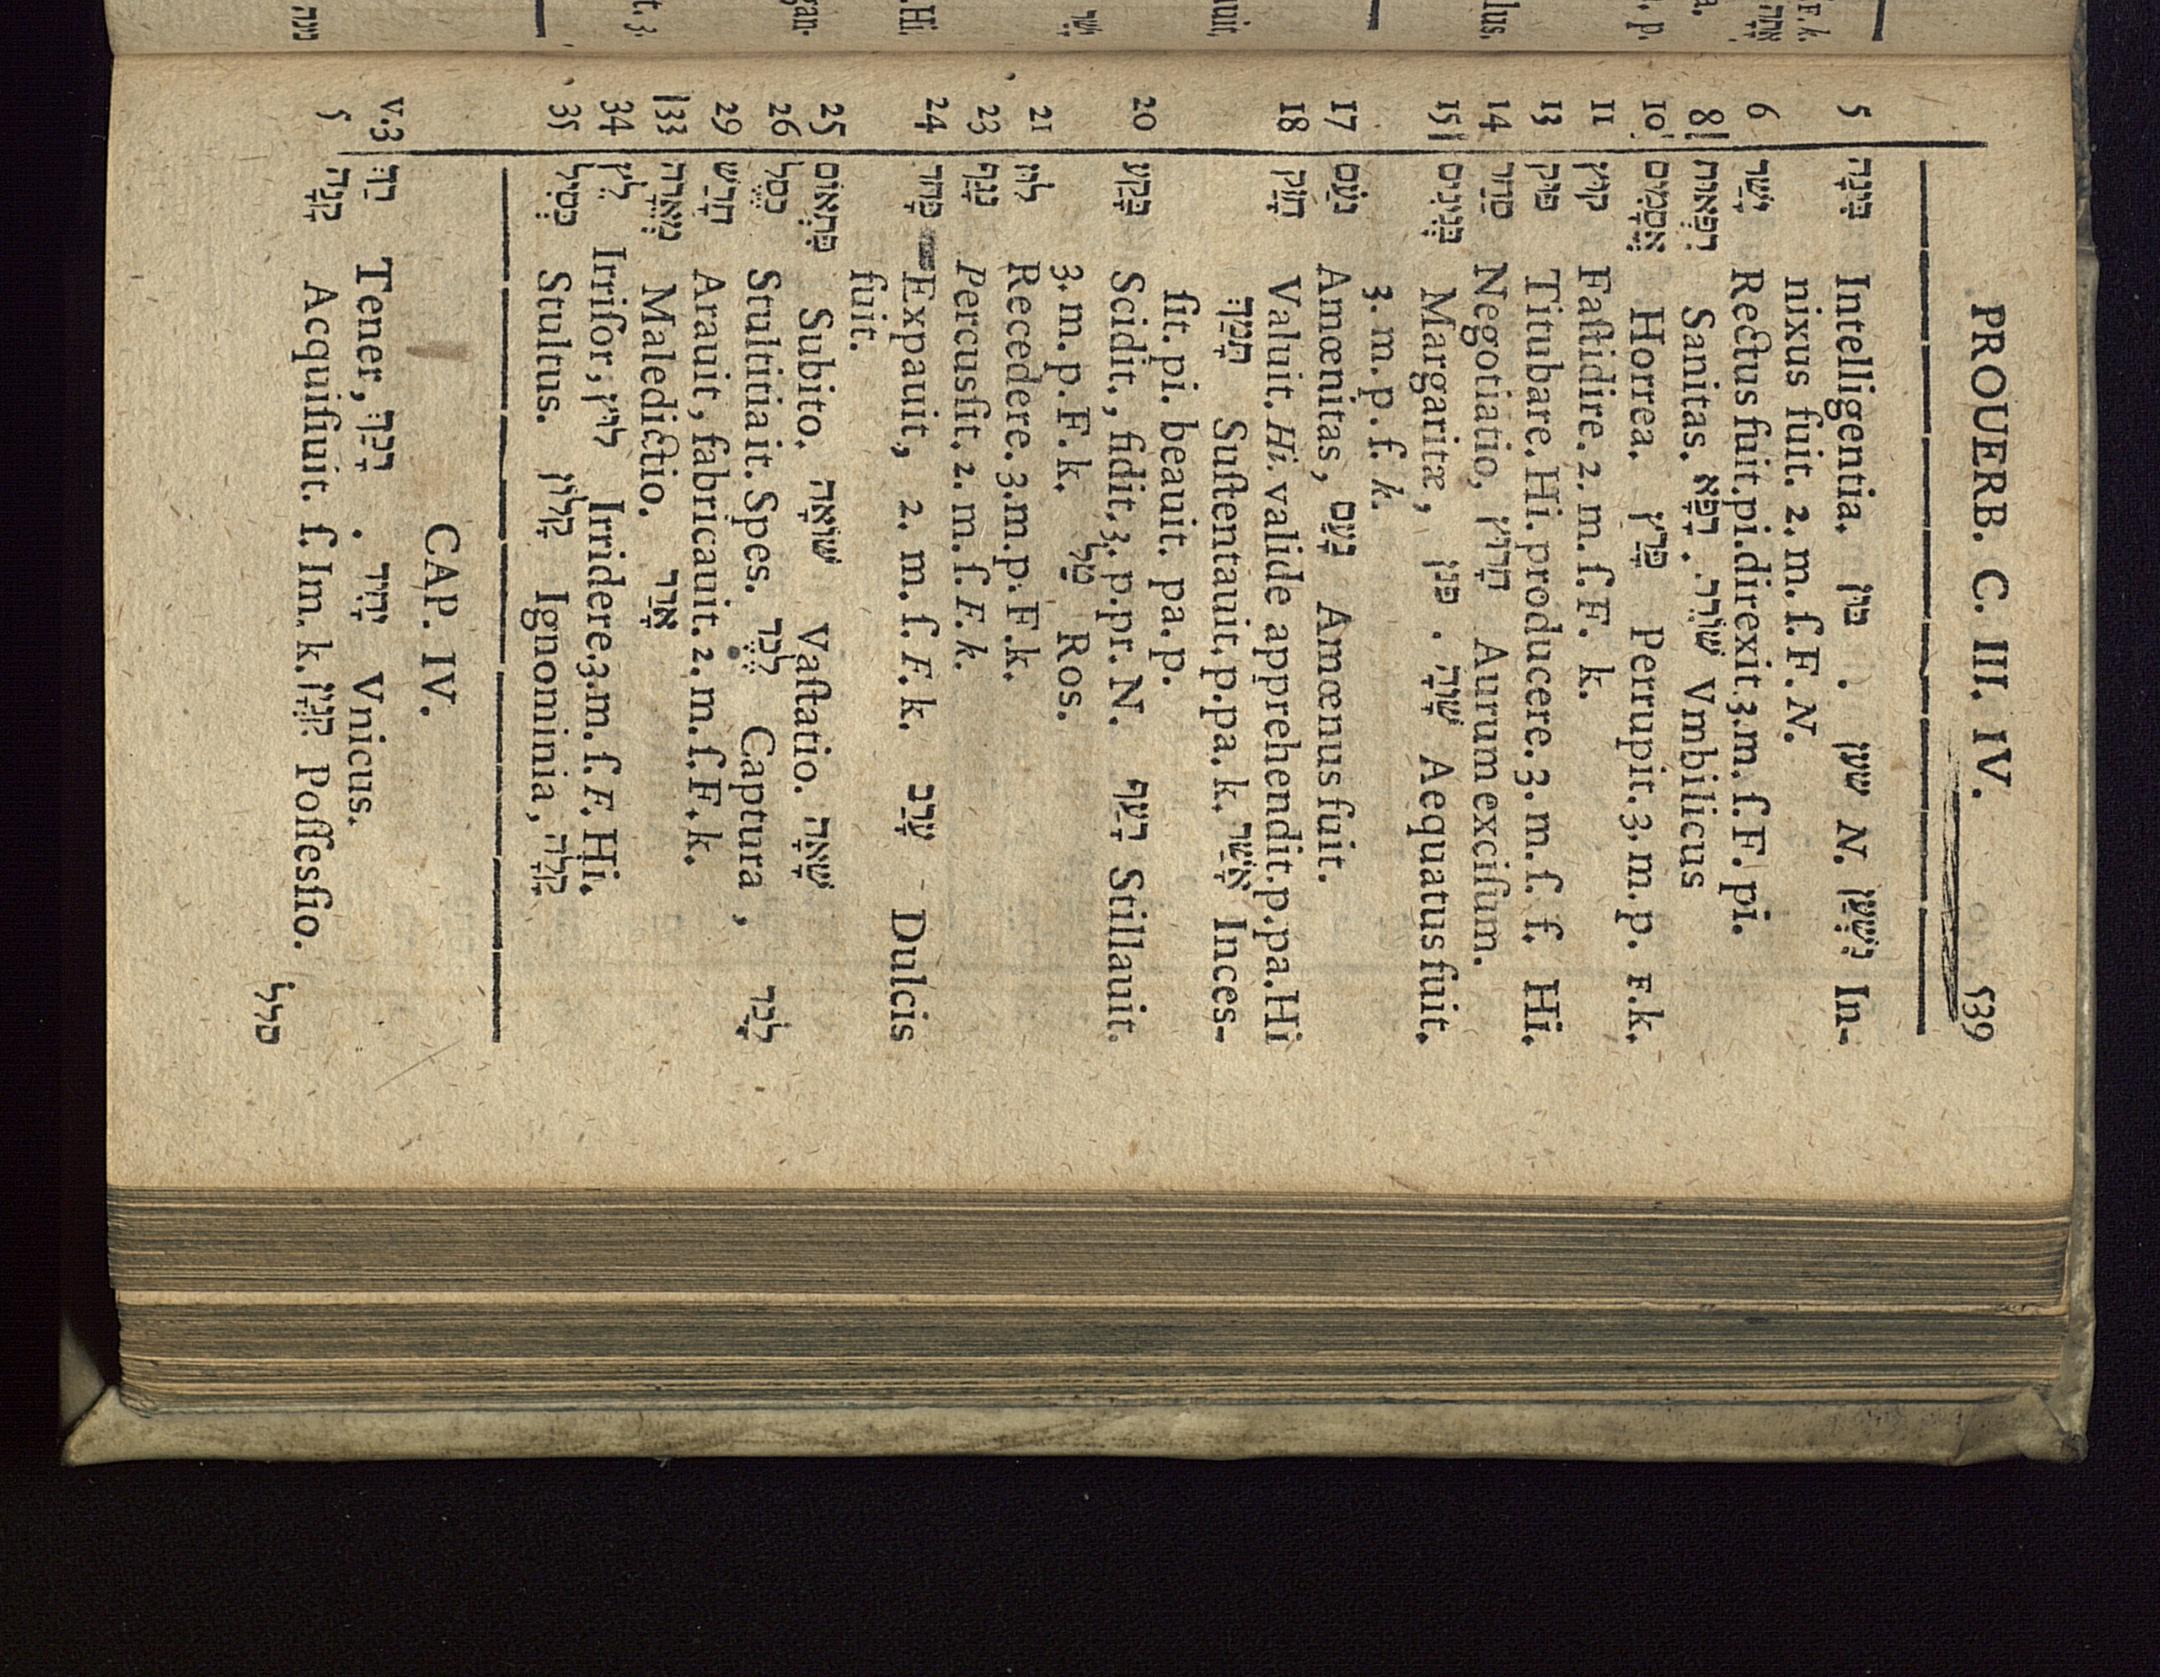 PROUERB. C. III. IV. 539
5 בִּינָה Intelligentia. בּוּן . שען N. נִשְׁעַן In-
nixus fuit. 2. m. ſ. F. N.
6 יָשַׁר Rectus fuit. pi. direxit. 3. m. ſ. F. pi.
8 רִפְאוּת Sanitas. רָפָא . שׁוֹרֵר Vmbilicus
10 אֲסָמִים Horrea. פָּרַץ Perrupit. 3. m. p. F. k.
11 קוּץ Faſtidire. 2. m. ſ. F. k.
13 פּוּק Titubare. Hi. producere. 3. m. ſ. f. Hi.
14 סַחַר Negotiatio, חָרוּץ Aurum exciſum.
15 פְּנִינִים Margaritæ, פנן . שָׁוָה Aequatus fuit.
3. m. p. f. k.
17 נֹעַם Amœnitas, נָעַם Amœnus fuit.
18 חָזַק Valuit. Hi. valide apprehendit. p. pa. Hi
תָּמַךְ Suſtentauit. p. pa. k. אָשַׁר Inces-
ſit. pi. beauit. pa. p.
20 בָּקַע Scidit., fidit. 3. p. pr. N. רָעַף Stillauit.
3. m. p. F. k. טַל Ros.
21 לוּז Recedere. 3. m. p. F. k.
23 נָגַף Percuſſit. 2. m. ſ. F. k.
24 פָּחַד Expauit, 2. m. ſ. F. k. עָרַב Dulcis
fuit.
25 פִּתְאוֹם Subito. שׁוֹאָה Vaſtatio. שָׁאָה
26 כֶּסֶל Stultitia it. Spes. לֶכֶד Captura, לָכַד
29 חָרַשׁ Arauit, fabricauit. 2. m. ſ. F. k.
33 מְאֵרָה Maledictio. אָרַר
34 לֵץ Irriſor, לוּץ Irridere. 3. m. ſ. F. Hi.
35 כְּסִיל Stultus. קָלוֹן Ignominia, קָלָה
CAP. IV.
v. 3 רַךְ Tener, רָכַךְ . יָחִיד Vnicus.
5 קָנָה Acquiſiuit. ſ. Im. k. קִנְיָן Poſſeſſio.
סלל